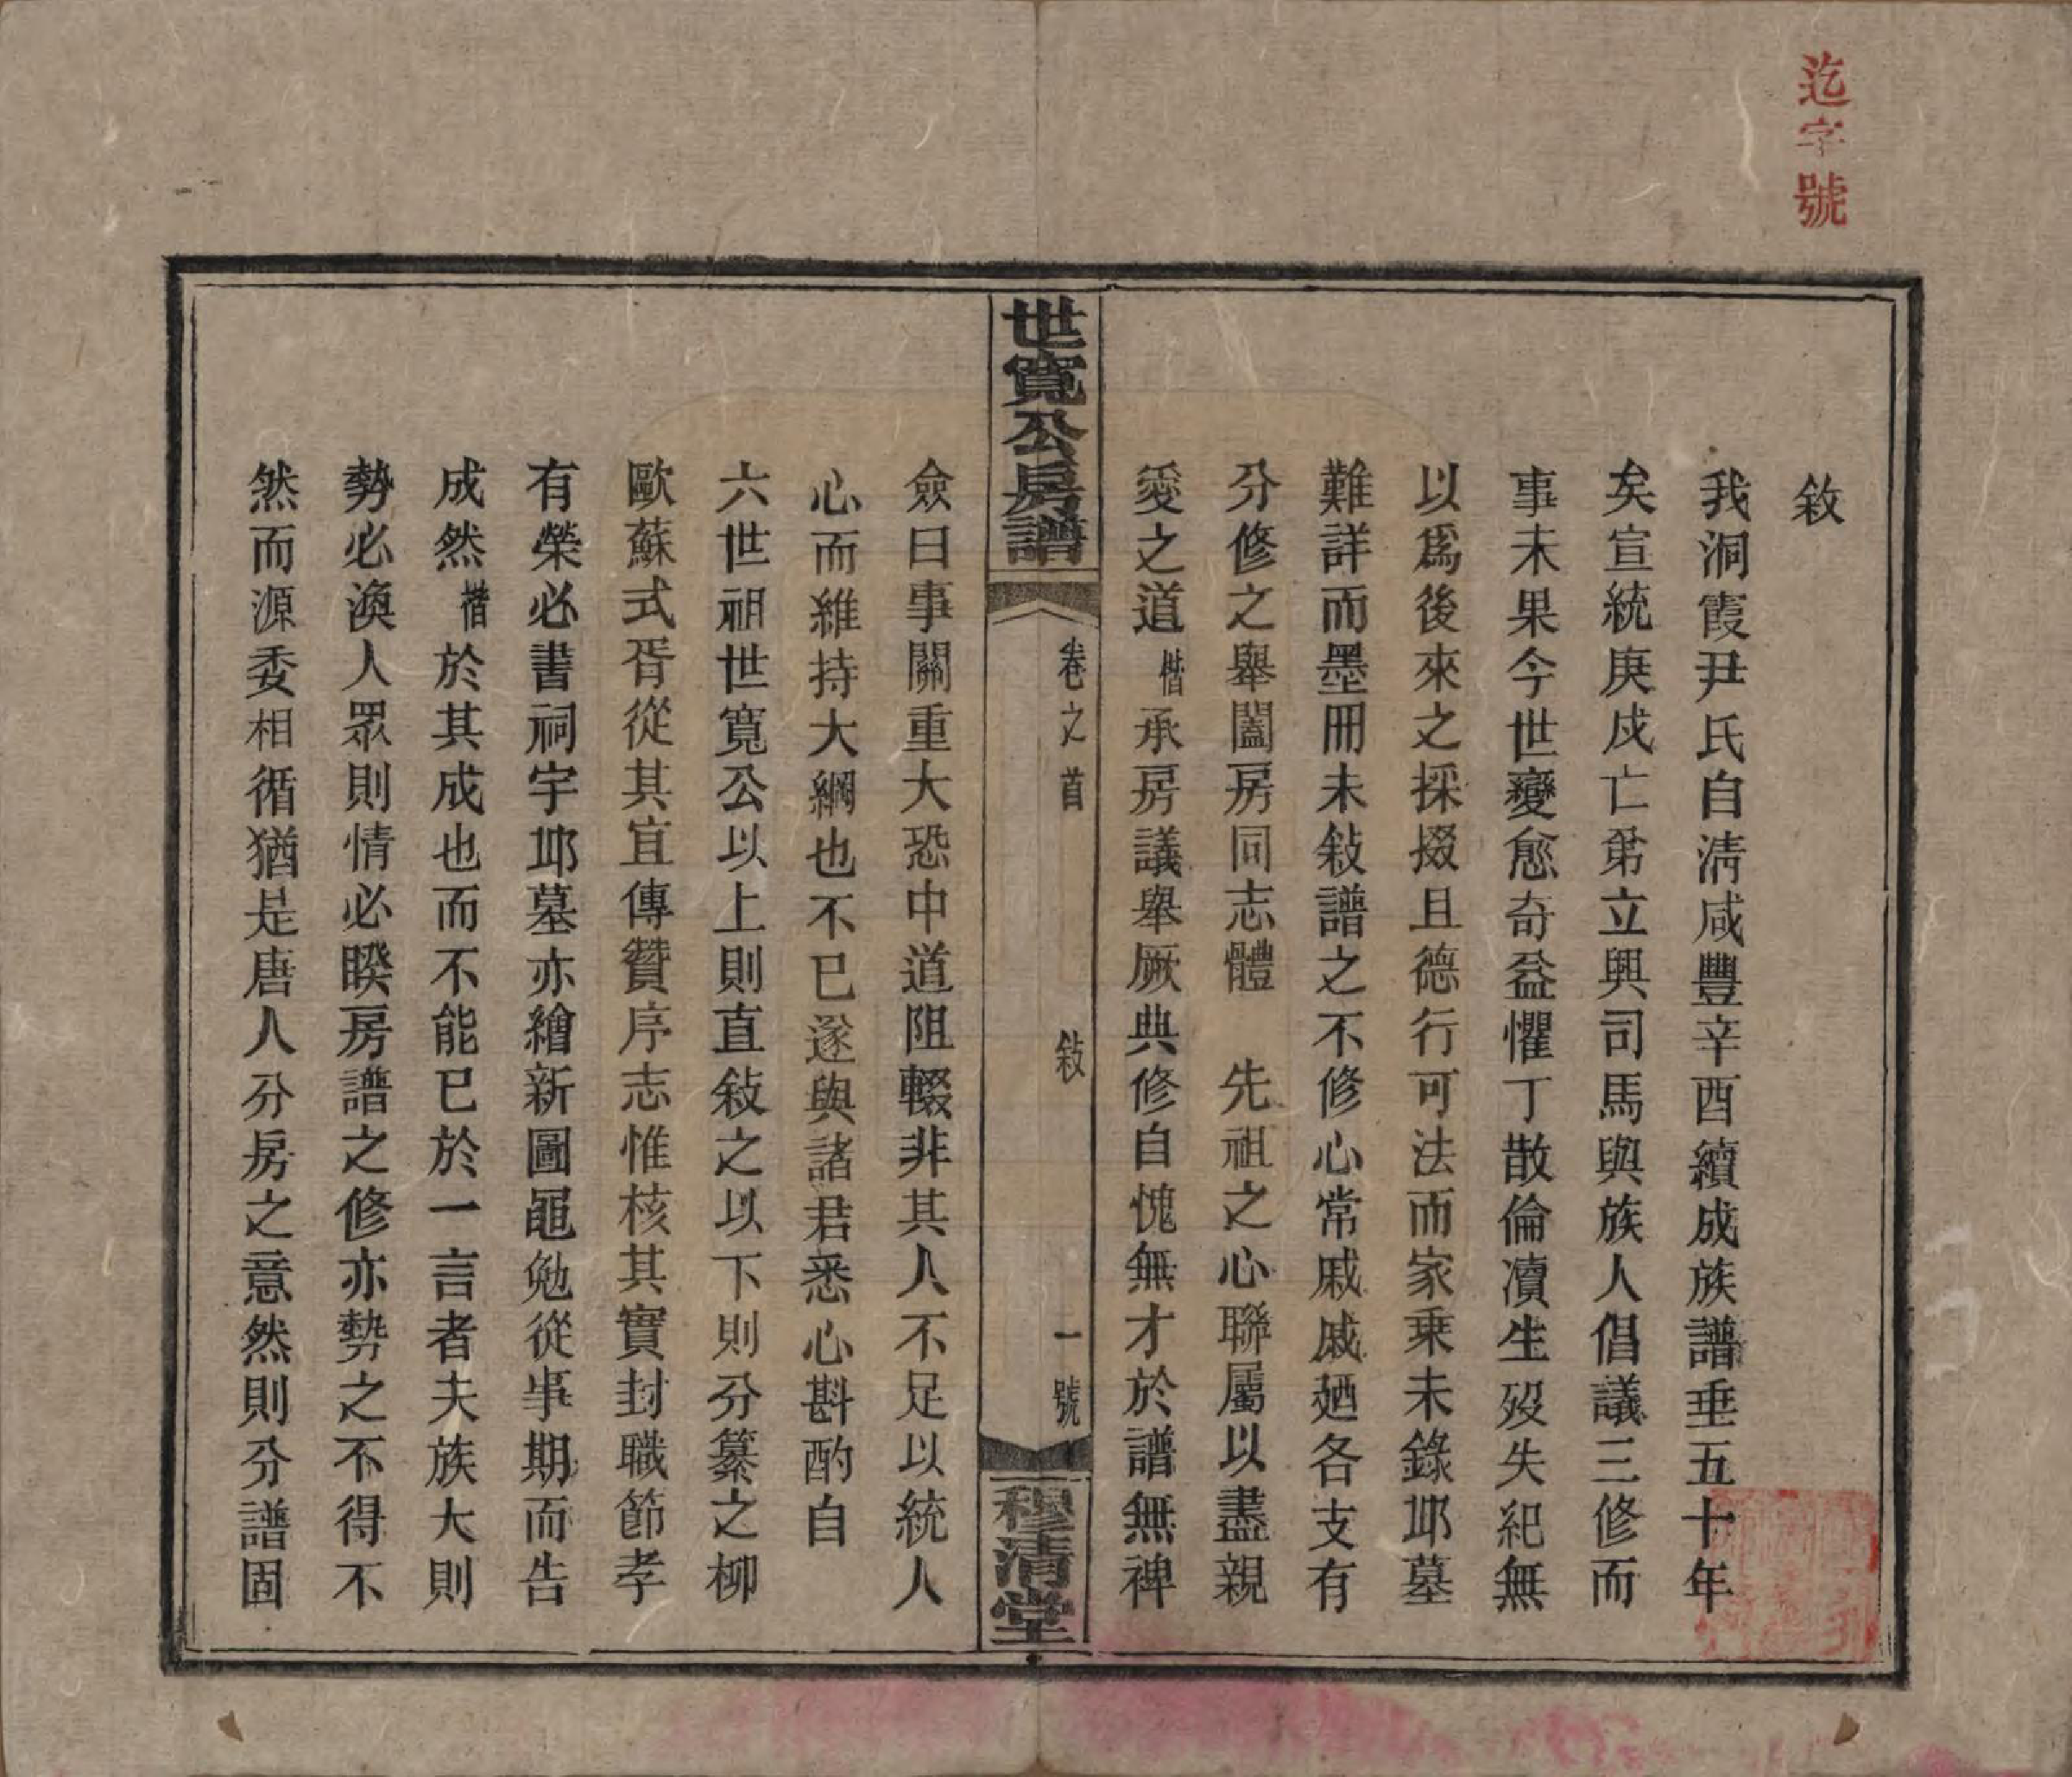 迄字號
敘
我洞霞尹氏自淸咸豐辛酉續成族譜垂五十年
矣宣統庚戌亡弟立興司馬與族人倡議三修而
事未果今世變愈奇益懼丁散倫瀆生歿失紀無
以爲後來之採掇且德行可法而家乗未錄邱墓
難詳而墨冊未敍譜之不修心常戚戚廼各支有
分修之舉闔房同志體　先祖之心聯屬以盡親
愛之道楷承房議舉厥典修自愧無才於譜無裨
世寬公房譜
卷之首
敍
一號
穆清堂
僉曰事關重大恐中道阻輟非其人不足以統人
心而維持大綱也不已遂與諸君悉心斟酌自
六世祖世寬公以上則直敍之以下則分纂之柳
歐蘇式胥從其宜傳贊序志惟核其實封職節孝
有榮必書祠宇邱墓亦繪新圖黽勉從事期而告
成然楷於其成也而不能已於一言者夫族大則
勢必渙人眾則情必睽房譜之修亦勢之不得不
然而源委相循猶是唐人分房之意然則分譜固